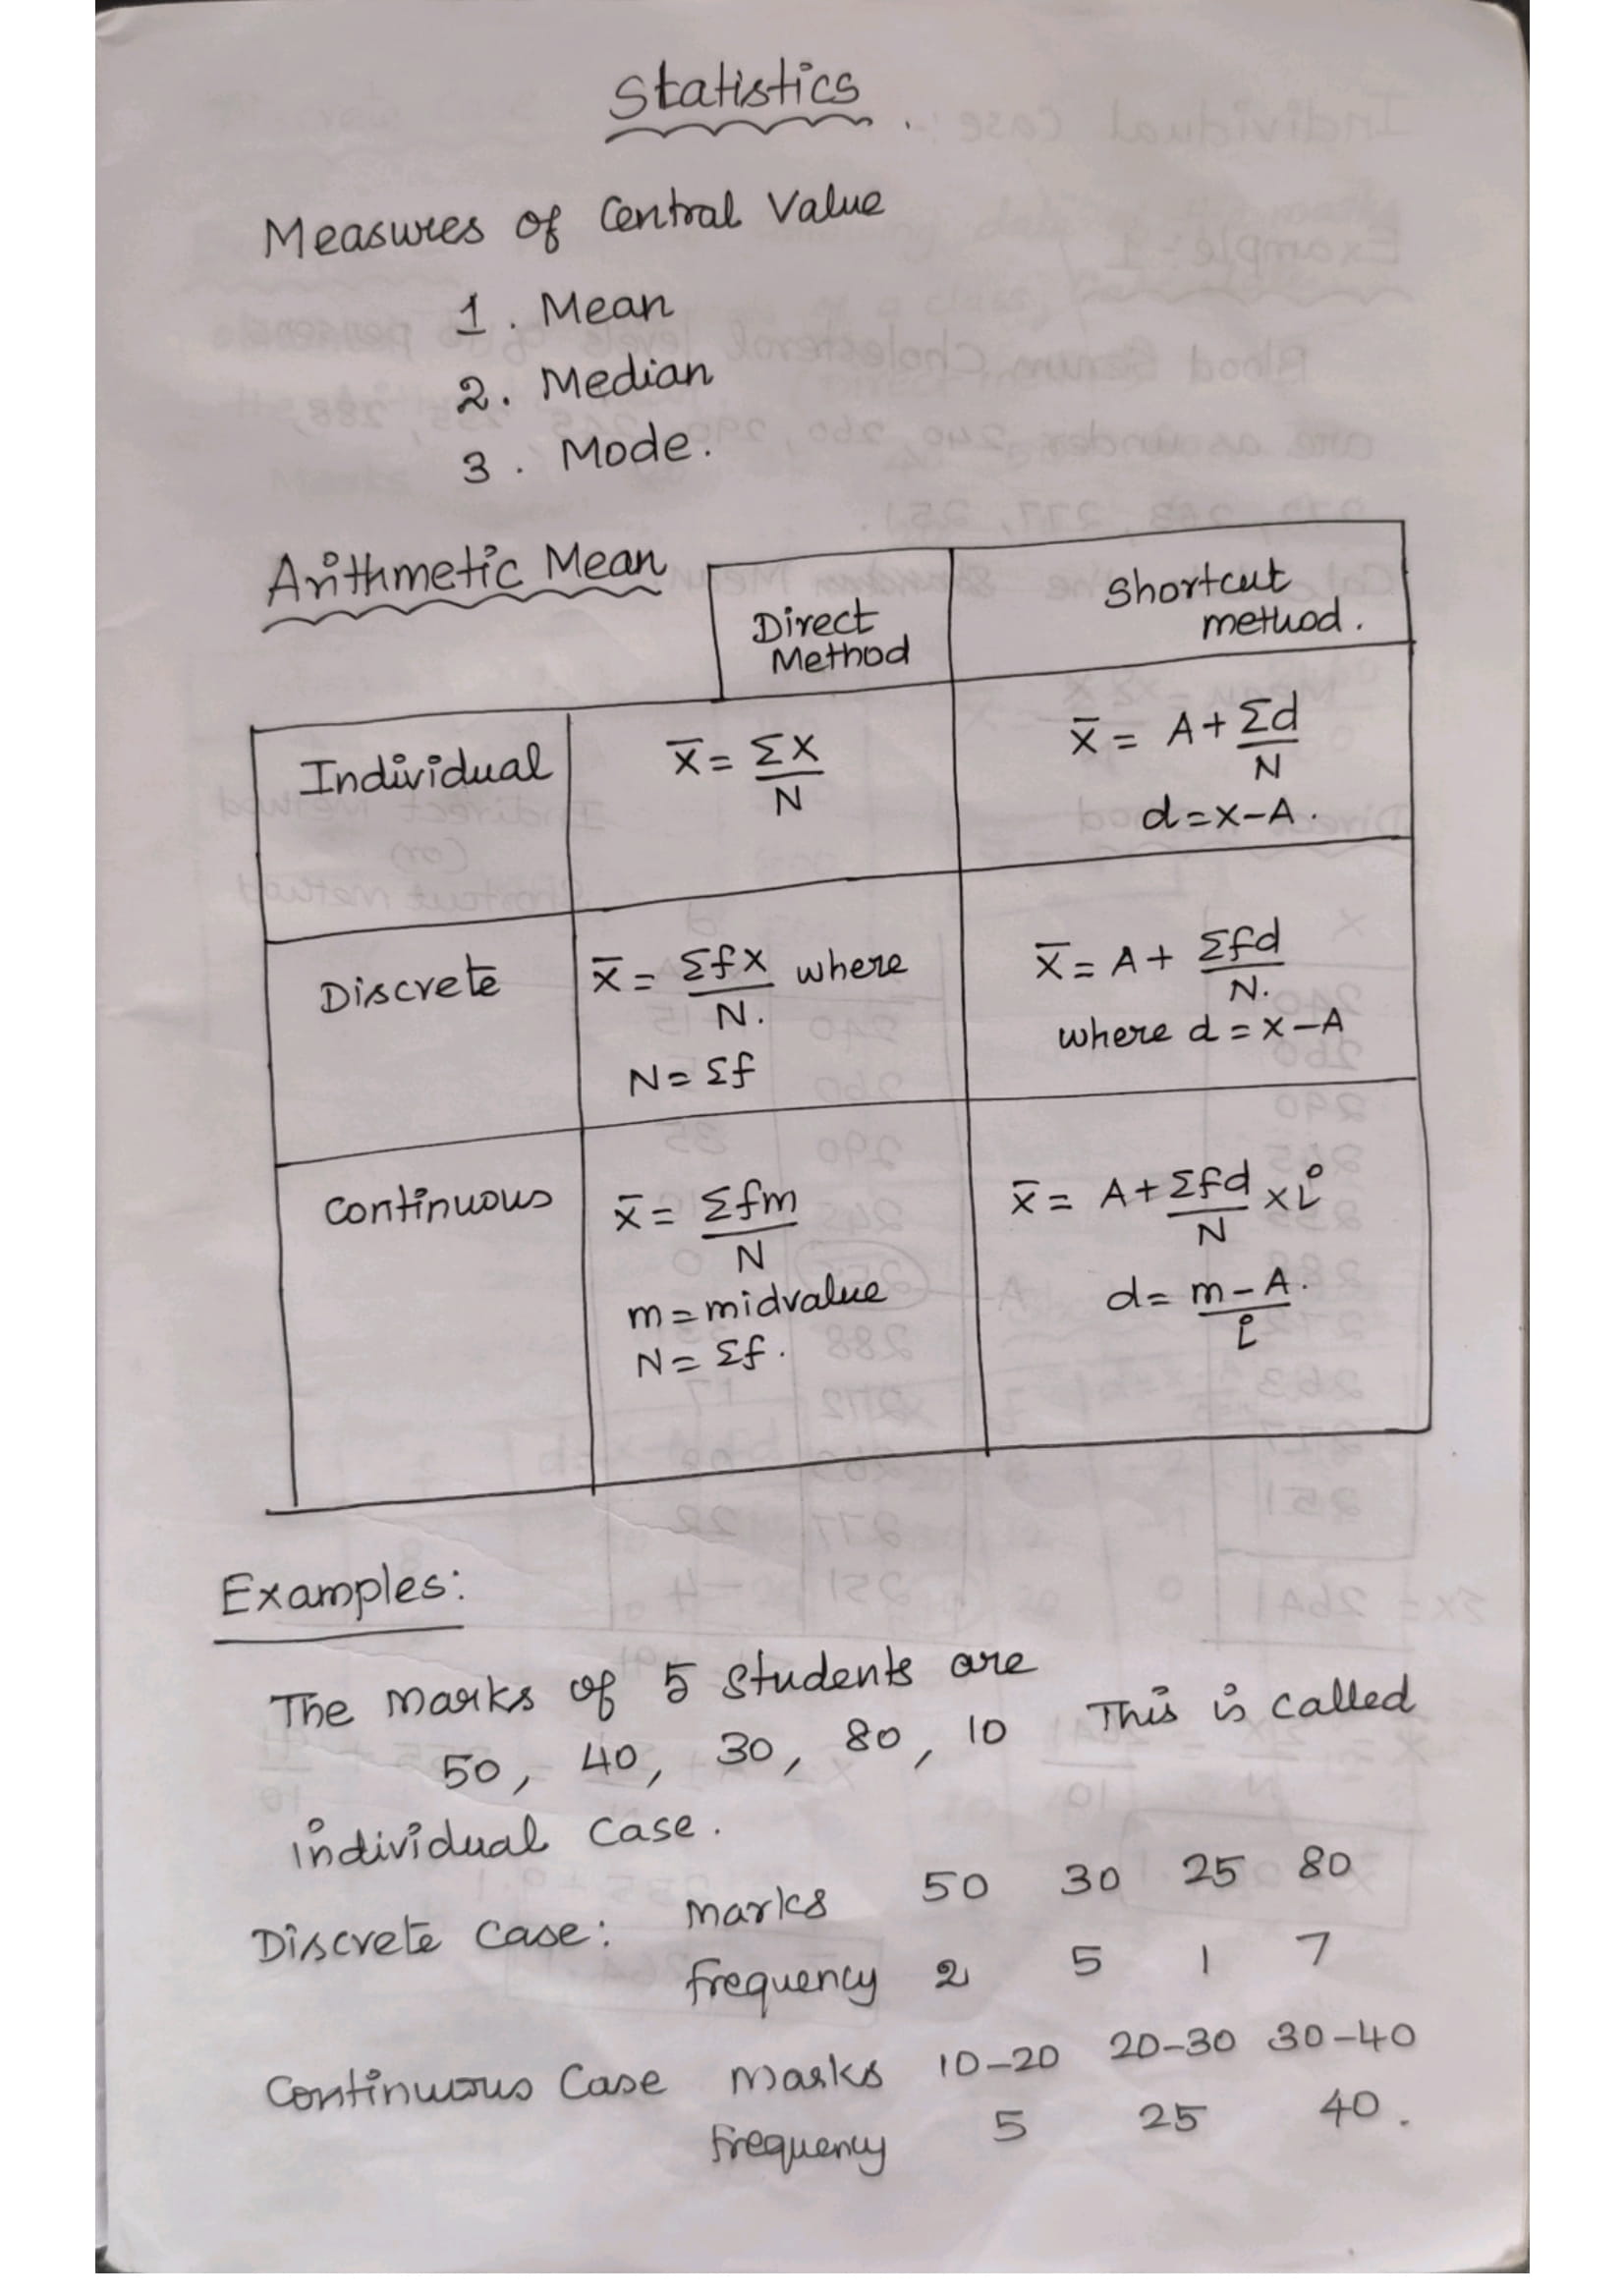 Statistics.
Measures of Central Value
1. Mean
2. Median
3. Mode.
Arithmetic Mean
Direct Method
Shortcut method.
Individual
x̄ = Σx/N
x̄ = A + Σd/N
d = x-A.
Discrete
x̄ = Σfx/N. where
N = Σf
x̄ = A + Σfd/N.
where d = x-A
Continuous
x̄ = Σfm/N
m = midvalue
N = Σf.
x̄ = A + Σfd/N × i
d = m-A./i
Examples:
The marks of 5 students are
50, 40, 30, 80, 10 This is called
individual case.
Discrete case: marks 50 30 25 80
frequency 2 5 1 7
Continuous Case marks 10-20 20-30 30-40
frequency 5 25 40.